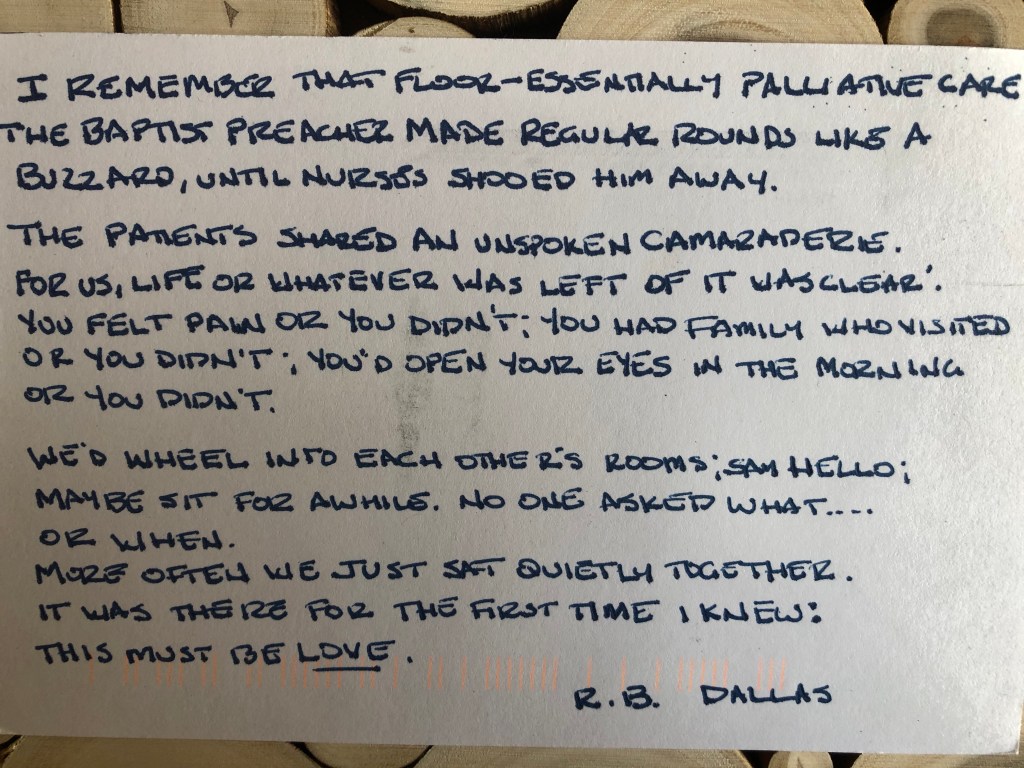 I REMEMBER THAT FLOOR-ESSENTIALLY PALLIATIVE CARE
THE BAPTIST PREACHER MADE REGULAR ROUNDS LIKE A
BUZZARD, UNTIL NURSES SHOOED HIM AWAY.
THE PATIENTS SHARED AN UNSPOKEN CAMARADERIE.
FOR US, LIFE OR WHATEVER WAS LEFT OF IT WAS CLEAR:
YOU FELT PAIN OR YOU DIDN'T; YOU HAD FAMILY WHO VISITED
OR YOU DIDN'T; YOU'D OPEN YOUR EYES IN THE MORNING
OR YOU DIDN'T.
WE'D WHEEL INTO EACH OTHER'S ROOMS; SAY HELLO;
MAYBE SIT FOR AWHILE. NO ONE ASKED WHAT....
OR WHEN.
MORE OFTEN WE JUST SAT QUIETLY TOGETHER.
IT WAS THERE FOR THE FIRST TIME I KNEW:
THIS MUST BE LOVE.
R.B. DALLAS